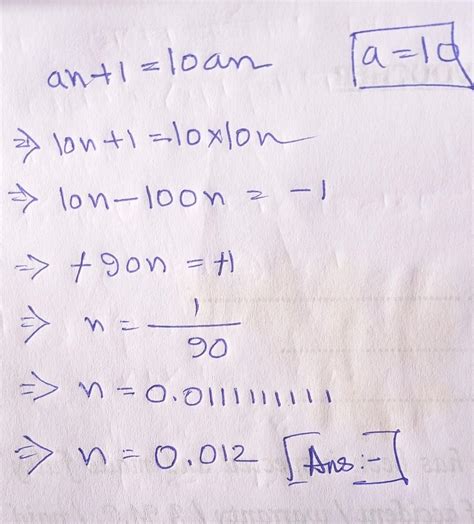 an+1 = 10an
a = 10
⇒ 10n+1 = 10×10n
⇒ 10n-100n = -1
⇒ +90n = +1
⇒ n = 1/90
⇒ n = 0.0111111111
⇒ n = 0.012 [Ans:-]